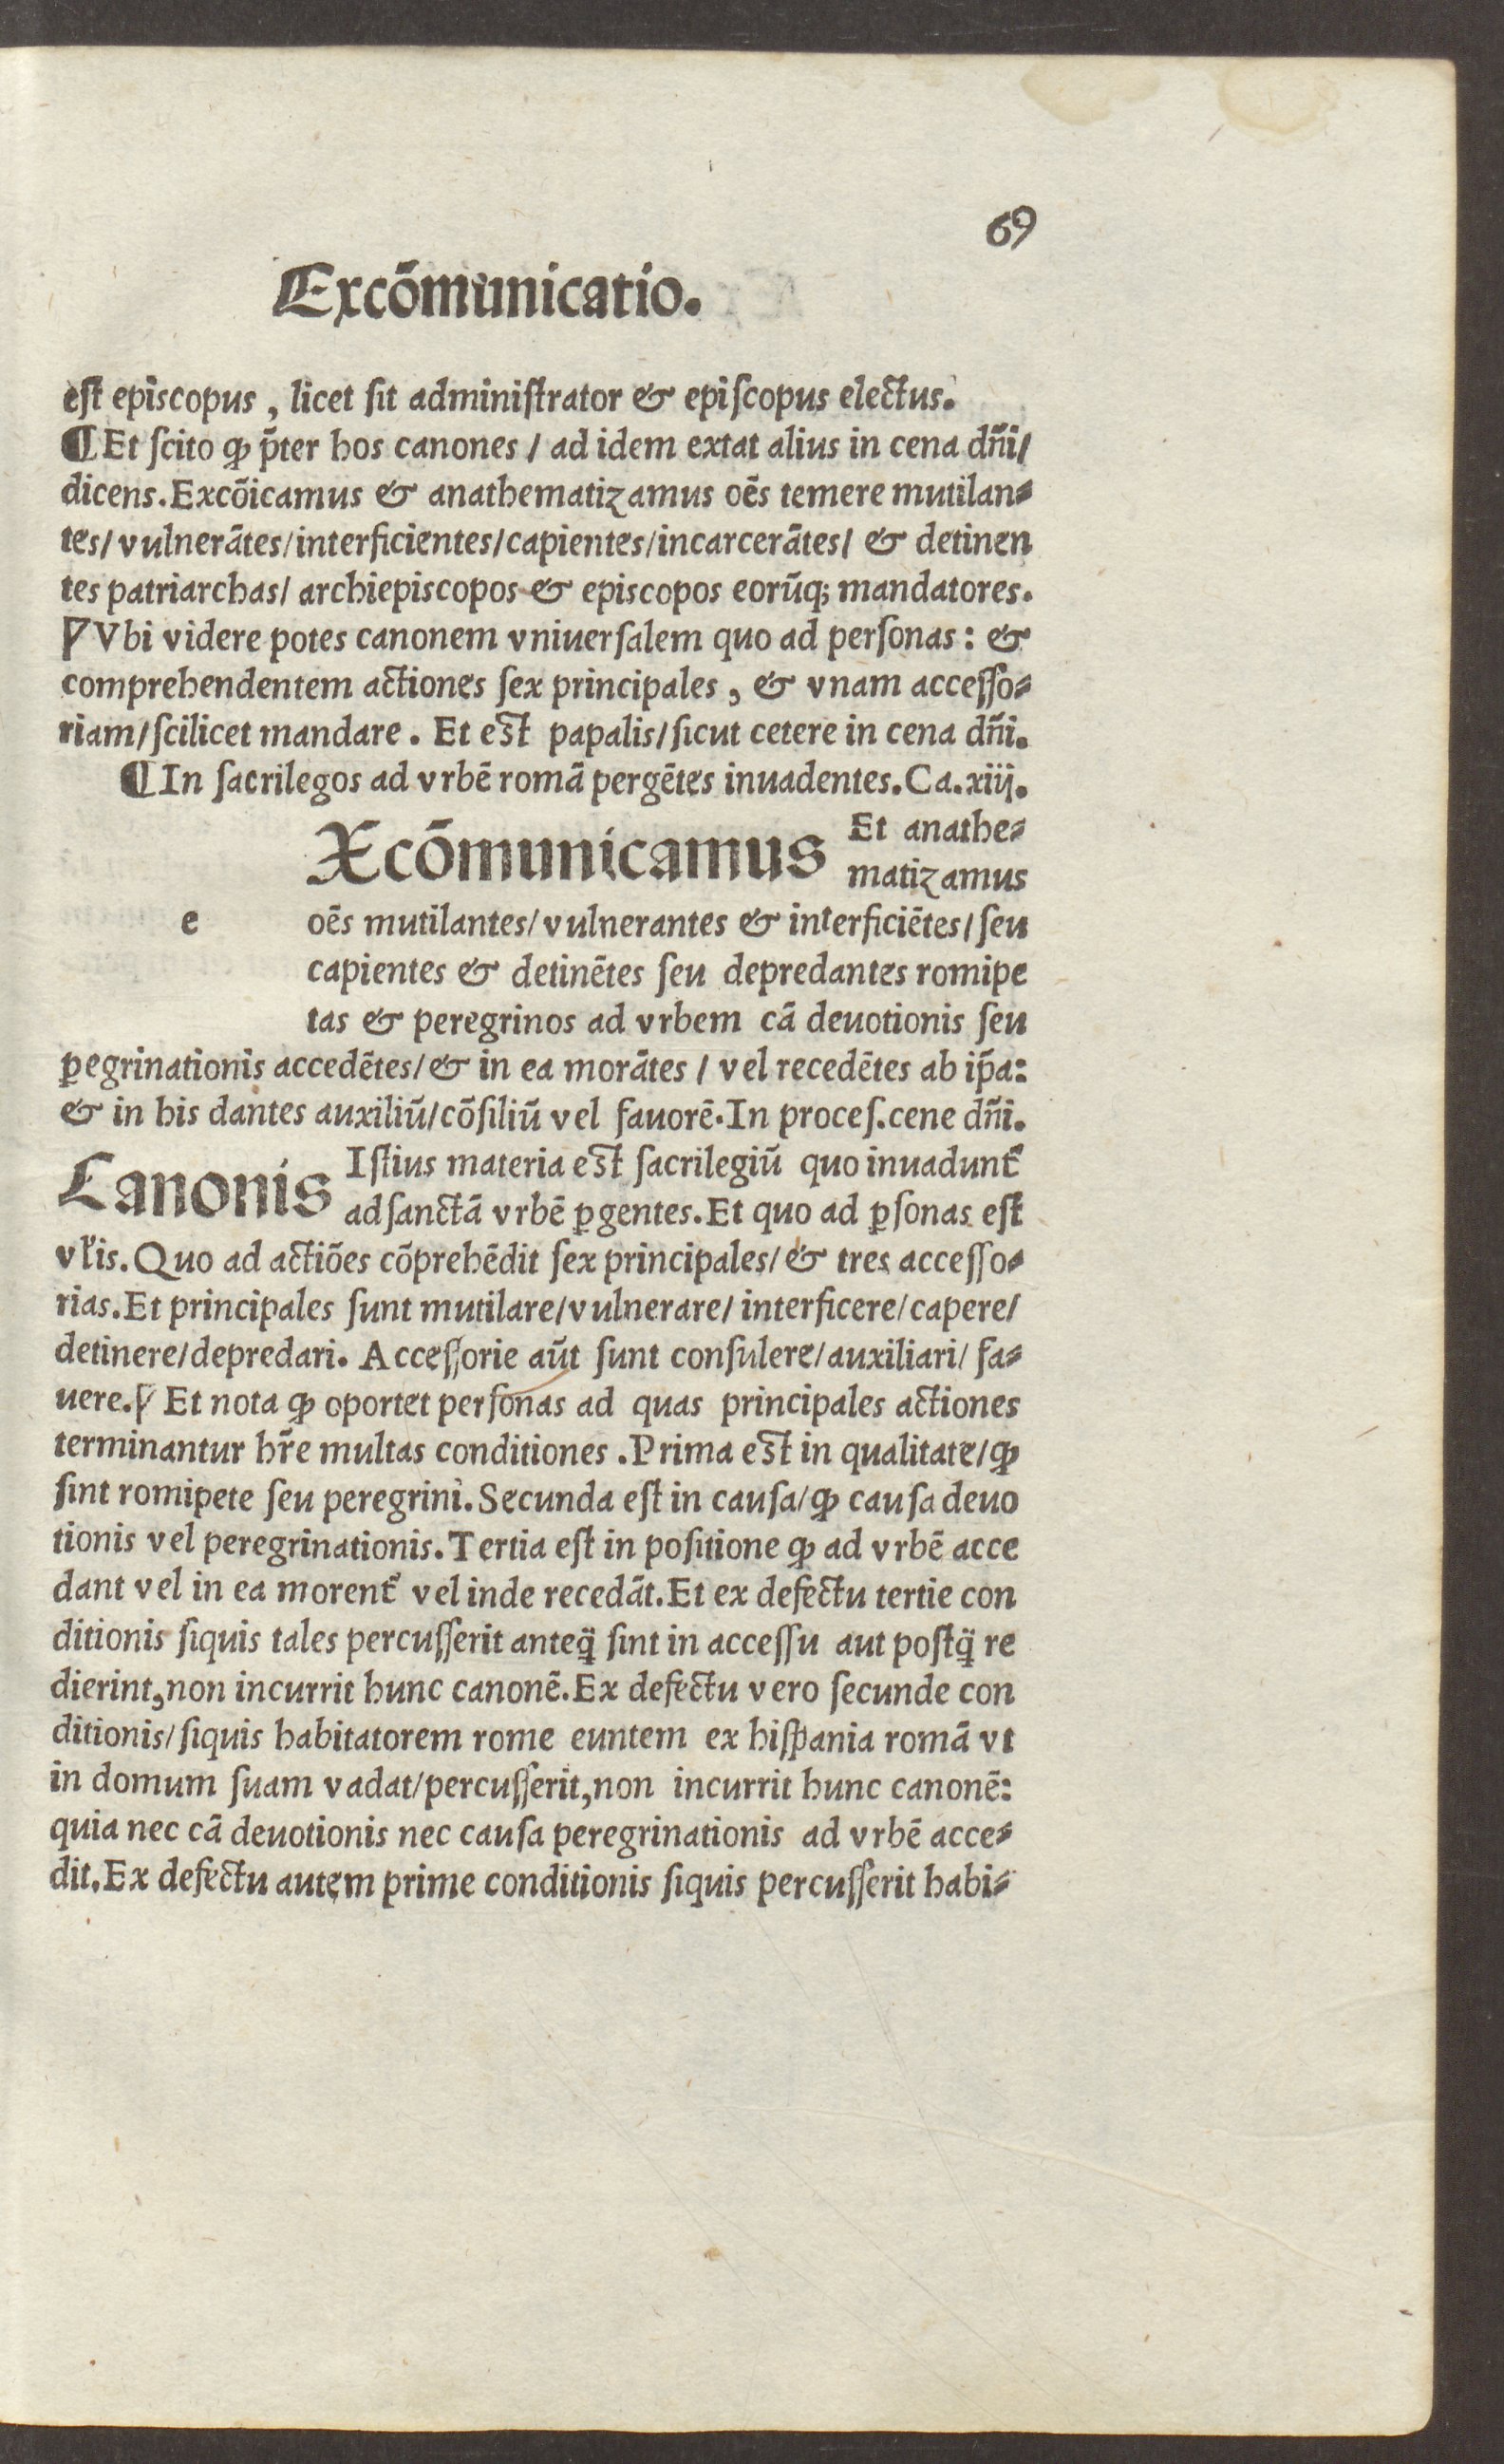 69
Excõmunicatio.
eſt episcopus, licet ſit adminiſtrator & epiſcopus electus.
¶Et ſcito ꝙ p̃ter hos canones / ad idem extat alius in cena dñi/
dicens. Excõicamus & anathematizamus oẽs temere mutilan⸗
tes/ vulnerãtes/interficientes/capientes/incarcerãtes/ & detinen
tes patriarchas/ archiepiscopos & episcopos eorũq; mandatores.
℣ Vbi videre potes canonem vniuerſalem quo ad perſonas: &
comprehendentem actiones ſex principales, & vnam acceſſo⸗
riam/ſcilicet mandare. Et eſt papalis/ſicut cetere in cena dñi.
¶In ſacrilegos ad vrbẽ romã pergẽtes inuadentes. Ca. xiij.
Xcõmunicamus Et anathe⸗
matizamus
e oẽs mutilantes/vulnerantes & interficiẽtes/ſeu
capientes & detinẽtes ſeu depredantes romipe
tas & peregrinos ad vrbem cã deuotionis ſeu
ꝑegrinationis accedẽtes/& in ea morãtes / vel recedẽtes ab ip̃a:
& in his dantes auxiliũ/cõſiliũ vel fauorẽ. In proceſ. cene dñi.
Canonis Iſtius materia eſt ſacrilegiũ quo inuadunt᷑
ad ſanctã vrbẽ ꝑgentes. Et quo ad ꝑſonas eſt
vl̃is. Quo ad actiões cõprehẽdit ſex principales/& tres acceſſo⸗
rias. Et principales ſunt mutilare/vulnerare/ interficere/capere/
detinere/depredari. Acceſſorie aũt ſunt conſulere/auxiliari/ fa⸗
uere. ℣ Et nota ꝙ oportet perſonas ad quas principales actiones
terminantur hr̃e multas conditiones. Prima eſt in qualitate/ꝙ
ſint romipete ſeu peregrini. Secunda eſt in cauſa/ꝙ cauſa deuo
tionis vel peregrinationis. Tertia eſt in poſitione ꝙ ad vrbẽ acce
dant vel in ea morent᷑ vel inde recedãt. Et ex defectu tertie con
ditionis ſiquis tales percuſſerit anteq̃ ſint in acceſſu aut poſtq̃ re
dierint, non incurrit hunc canonẽ. Ex defectu vero ſecunde con
ditionis/ſiquis habitatorem rome euntem ex hiſpania romã vt
in domum ſuam vadat/percuſſerit, non incurrit hunc canonẽ:
quia nec cã deuotionis nec cauſa peregrinationis ad vrbẽ acce⸗
dit. Ex defectu autem prime conditionis ſiquis percuſſerit habi⸗